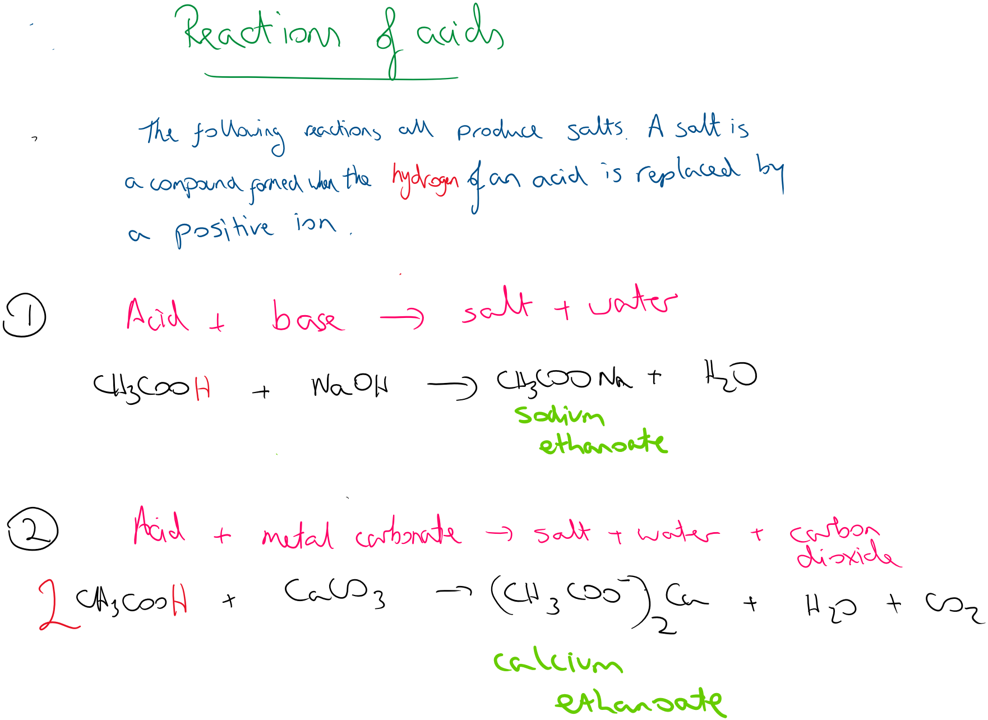 Reactions of acids
The following reactions all produce salts. A salt is
a compound formed when the hydrogen of an acid is replaced by
a positive ion.
1 Acid + base → salt + water
CH3COOH + NaOH → CH3COONa + H2O
sodium
ethanoate
2 Acid + metal carbonate → salt + water + carbon
dioxide
2CH3COOH + CaCO3 → (CH3COO⁻)2Ca + H2O + CO2
calcium
ethanoate